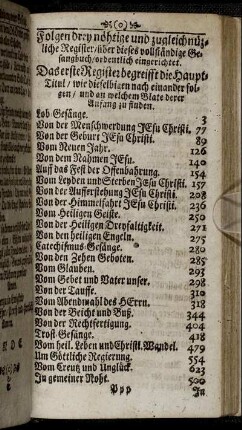 (o)
Folgen drey nöhtige und zugleich nüz-
liche Register/über dieses vollständige Ge-
sangbuch/ordentlich eingerichtet.
Das erste Register begreifft die Haupt-
Titul/ wie dieselbigen nach einander fol-
gen/ und an welchem Blate derer
Anfang zu finden.
Lob Gesänge. 3
Von der Menschwerdung JEsu Christi. 77
Von der Geburt JEsu Christi. 89
Vom Neuen Jahr. 126
Von dem Nahmen JEsu. 140
Auff das Fest der Offenbahrung. 154
Vom Leyden und Sterben JEsu Christi. 157
Von der Aufferstehung JEsu Christi. 208
Von der Himmelfahrt JEsu Christi. 236
Vom Heiligen Geiste. 250
Von der Heiligen Dreyfaltigkeit. 271
Von den heiligen Engeln. 275
Catechismus Gesänge. 280
Von den Zehen Geboten. 285
Vom Glauben. 293
Vom Gebet und Vater unser. 298
Von der Tauffe. 310
Vom Abendmahl des HErrn. 328
Von der Beicht und Buß. 344
Von der Rechtfertigung. 404
Trost Gesänge. 418
Vom heil. Leben und Christl. Wandel. 479
Um Göttliche Regierung. 554
Vom Creutz und Unglück. 623
In gemeiner Noht. 500
Ppp In